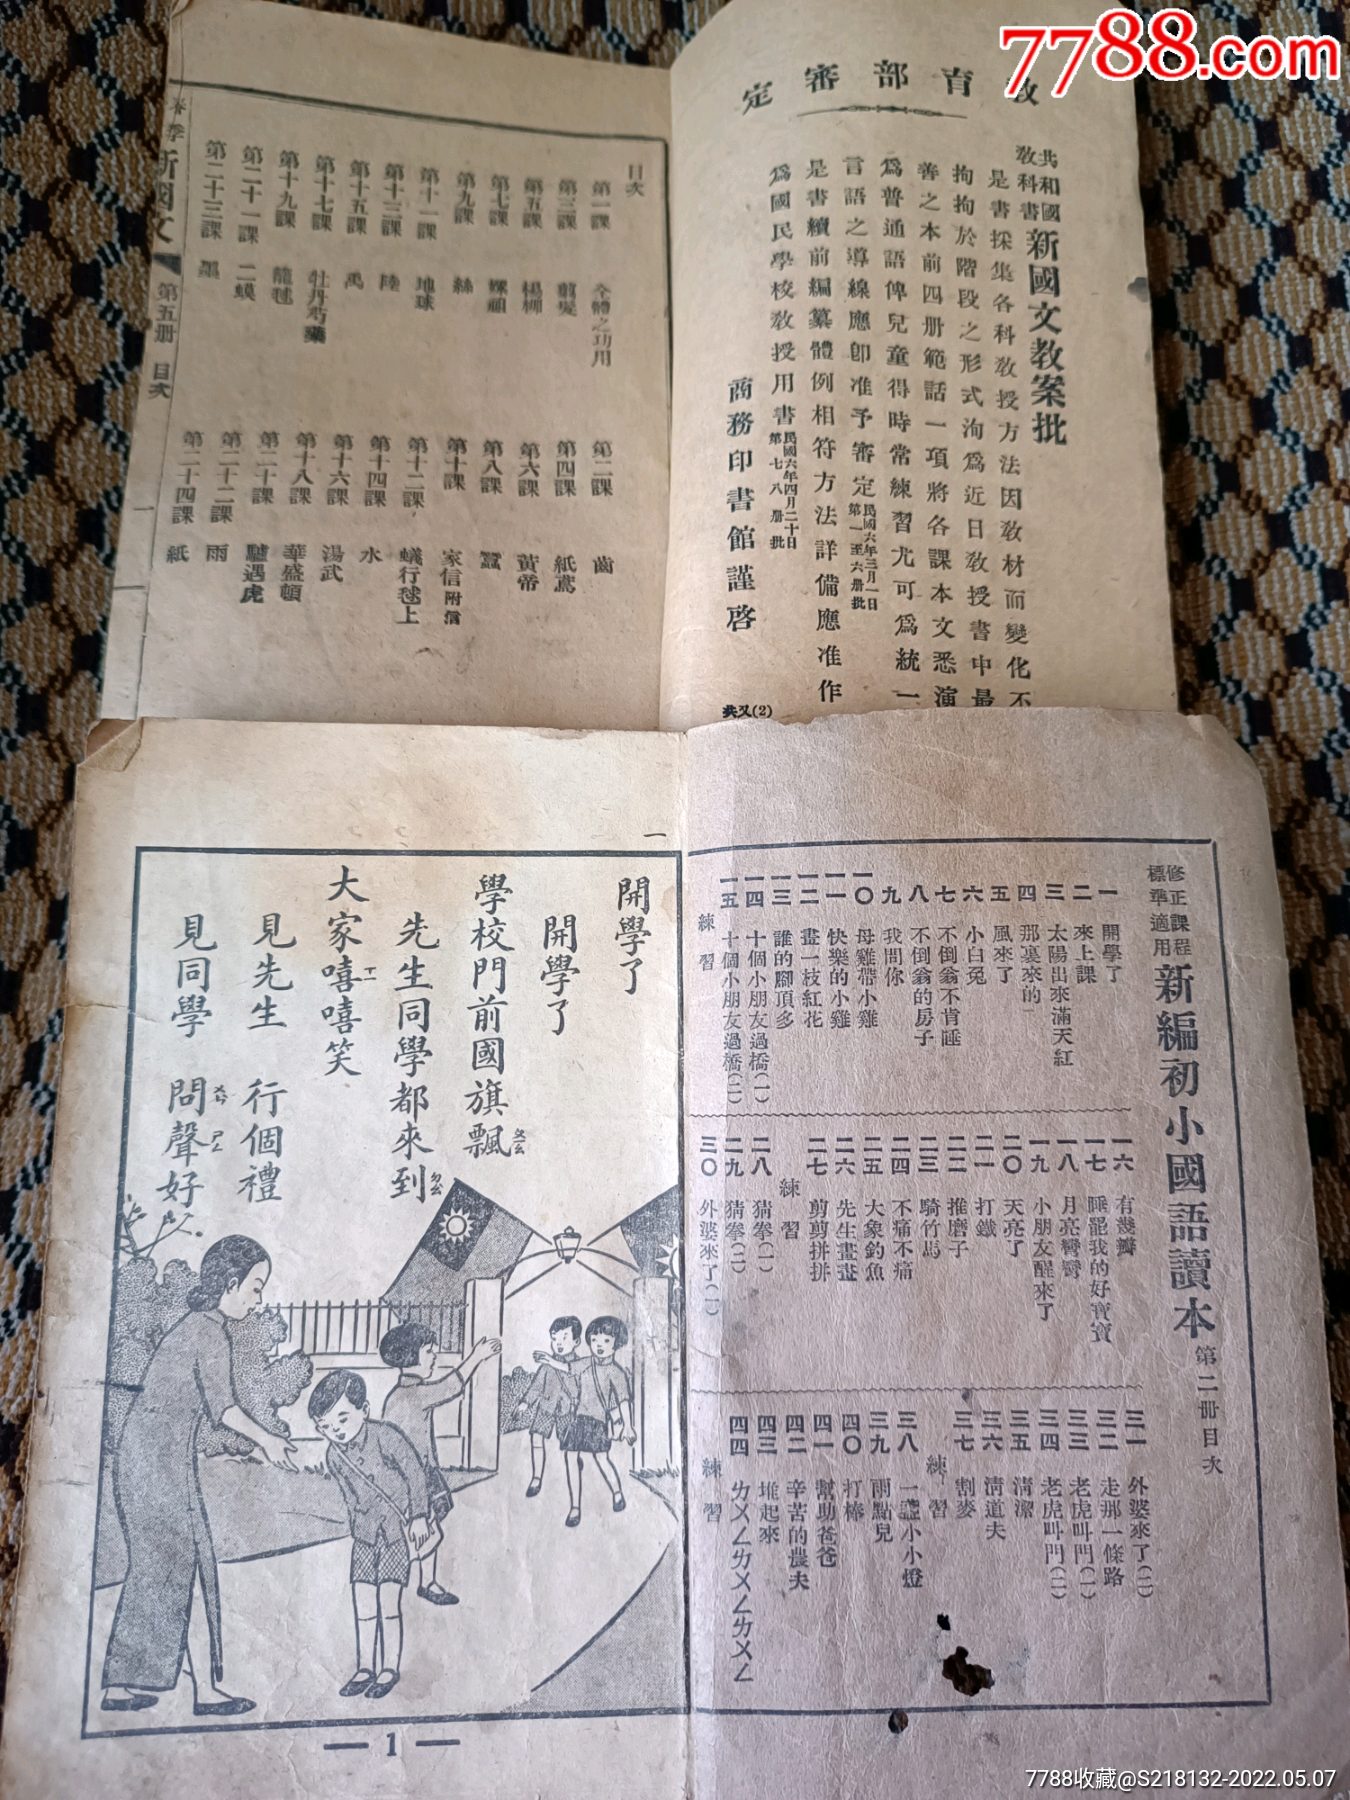 7788.com
教育部審定
共和國教科書新國文教案批
是書採集各科教授方法因教材而變化不
拘拘於階段之形式洵爲近日教授書中最
善之本前四册範話一項將各課本文悉演
爲普通語俾兒童得時常練習尤可爲統一
言語之導線應卽准予審定民國六年三月一日第一至六册批
是書續前編纂體例相符方法詳備應准作
爲國民學校教授用書民國六年四月二十日第七八册批
商務印書館謹啓
共又(2)
目次
第一課 全體之功用
第二課 齒
第三課 剪髮
第四課 紙鳶
第五課 楊柳
第六課 黃帝
第七課 嫘祖
第八課 蠶
第九課 絲
第十課 家信附信
第十一課 地球
第十二課 蟻行毬上
第十三課 陸
第十四課 水
第十五課 禹
第十六課 湯武
第十七課 牡丹芍藥
第十八課 華盛頓
第十九課 龍毬
第二十課 驢遇虎
第二十一課 二蟆
第二十二課 雨
第二十三課 墨
第二十四課 紙
春季 新國文 第五册 目次 一
修正課程標準適用 新編初小國語讀本 第二册目次
一 開學了
二 來上課
三 太陽出來滿天紅
四 那裏來的
五 風來了
六 小白兔
七 不倒翁不肯睡
八 不倒翁的房子
九 我問你
一〇 母雞帶小雞
一一 快樂的小雞
一二 畫一枝紅花
一三 誰的腳頂多
一四 十個小朋友過橋(一)
一五 十個小朋友過橋(二)
練習
一六 有幾瓣
一七 睡罷我的好寶寶
一八 月亮彎彎
一九 小朋友醒來了
二〇 天亮了
二一 打鐵
二二 推磨子
二三 騎竹馬
二四 不痛不痛
二五 大象釣魚
二六 先生畫畫
二七 剪剪拼拼
練習
二八 猜拳(一)
二九 猜拳(二)
三〇 外婆來了(一)
三一 外婆來了(二)
三二 走那一條路
三三 老虎叫門(一)
三四 老虎叫門(二)
三五 清潔
三六 清道夫
三七 割麥
練習
三八 一盞小小燈
三九 雨點兒
四〇 打棒
四一 幫助爸爸
四二 辛苦的農夫
四三 堆起來
四四 ㄌㄨㄥㄌㄨㄥㄌㄨㄥ
練習
一
開學了
開學了
學校門前國旗飄ㄆㄠ
先生同學都來到ㄉㄠ
大家嘻ㄒㄧ嘻笑
見先生 行個禮
見同學 問ㄨㄣ聲ㄕㄥ好
— 1 —
7788收藏@S218132-2022.05.07